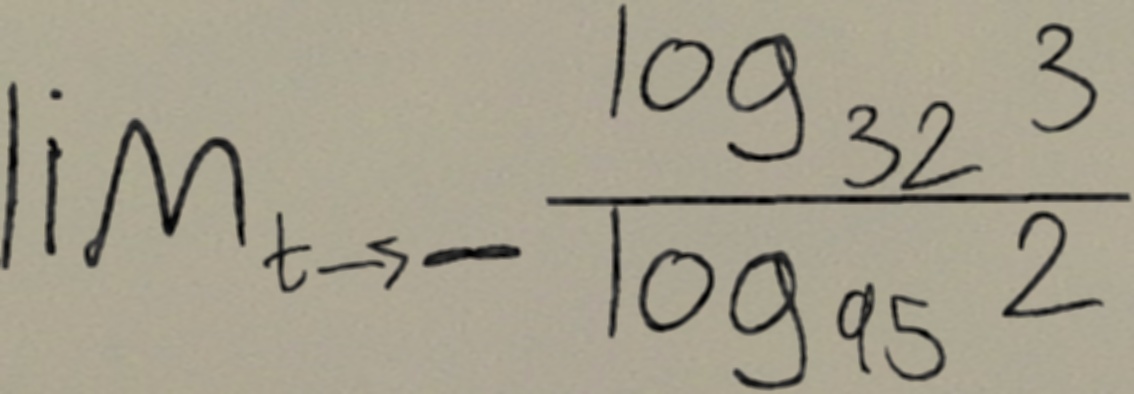 lim_{t→-} \frac{log_{32} 3}{log_{95} 2}